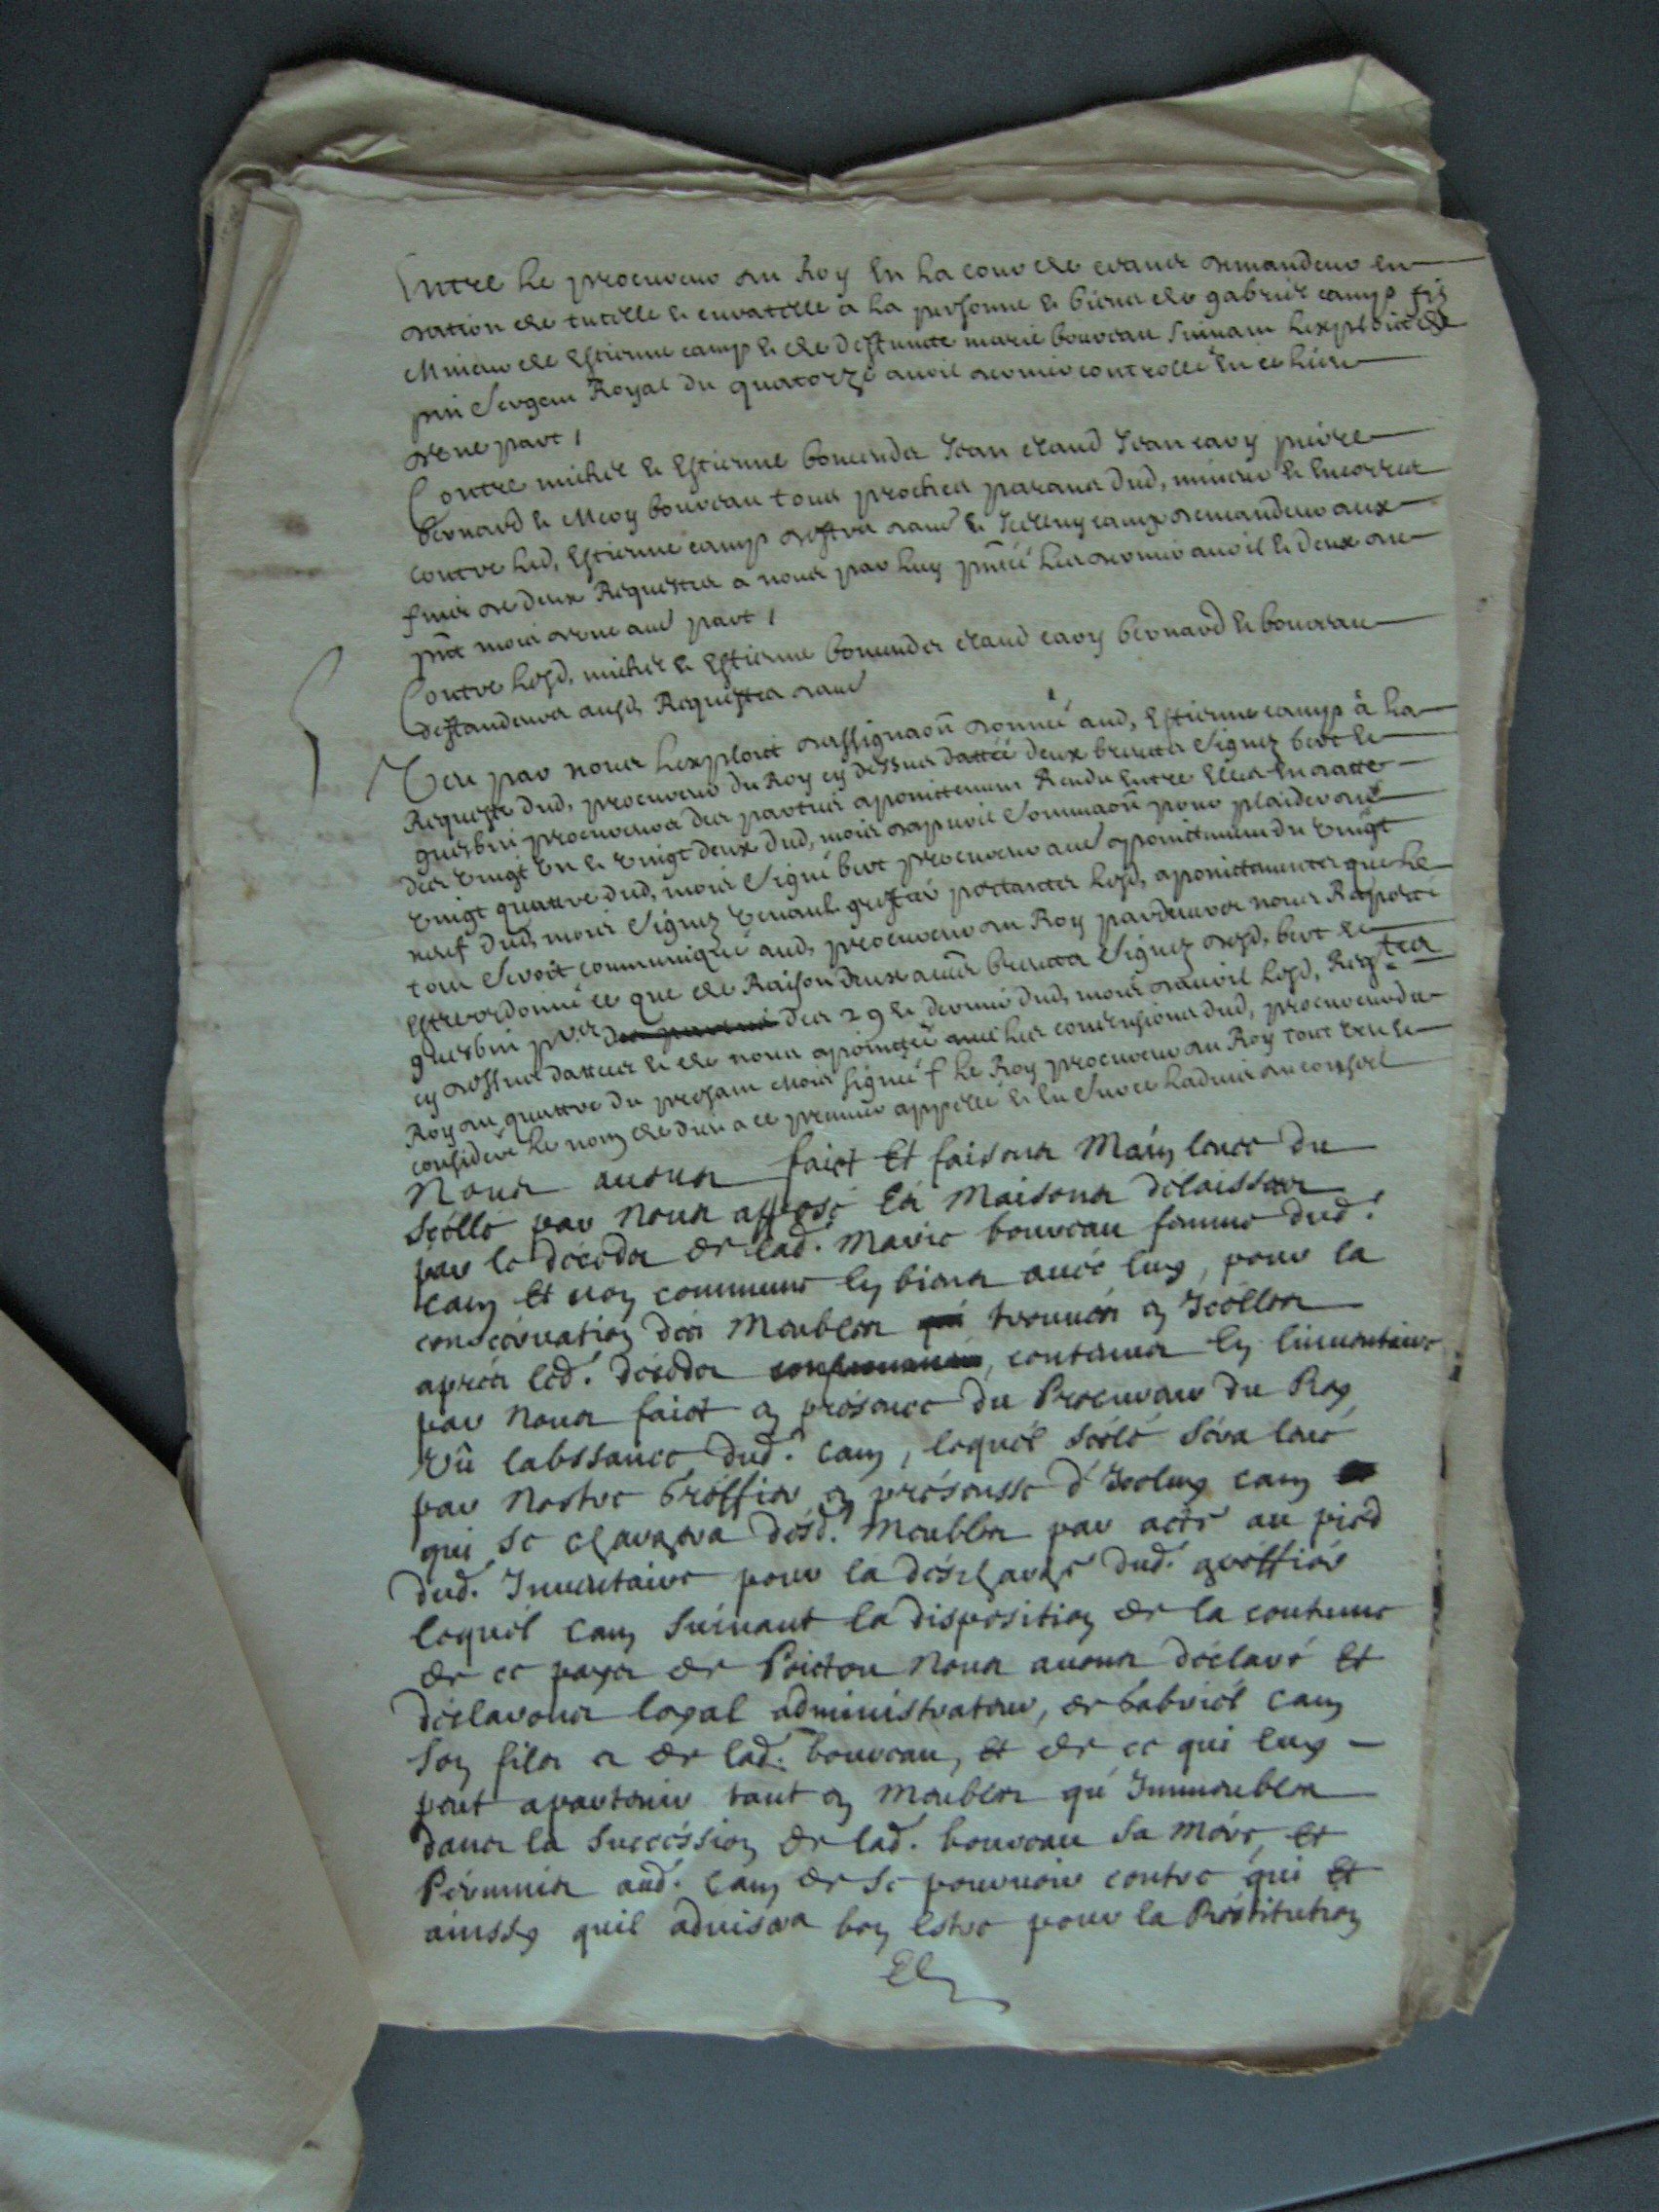 Entre le procureur du Roy en la cour de ceans demandeur en
dation de tutelle et curatelle a la personne et biens de gabriel camp fils
mineur de Estienne camp et de deffuncte marie boureau suivant lexploit de
sergent Royal du quatorze avril dernier controllé en ce lieu
dune part /
Contre michel et Estienne Jean claud Jean cary pierre
bernard et boureau tous proches parans dud, mineur et encorres
contre led, Estienne camp deffendeur dautre et Icelluy camp demandeur aux
fins de deux Requestes a nous par luy les dernier avril et deux de
pnt mois dune autre part /
Contre lesd, michel et Estienne claud cary bernard et boureau
deffandeurs ausd, Requestes dautre
Veu par nous lexploit dassignaon donné aud, Estienne camp à la
Requeste dud, procureur du Roy cy dessus datté deux brevets signez bert et
procureurs des parties apointement Rendu entre elles en datte
des vingt un et vingt deux dud, mois dapvril sommaon pour plaider du
vingt quattre dud, mois signé bert procureur autre apointement du vingt
neuf dud, mois signez greffier portantes lesd, apointements que le
tout seroit communiqué aud, procureur du Roy pardevers nous Raporté
estre ordonné ce que de Raison deux autres brevets signez desd, bert et
des 29 et dernier dud, mois davril lesd, Reqtes
cy dessus dattées et de nous apointée avec les conclusions dud, procureur du
Roy du quattre du presant mois signée f le Roy procureur du Roy tout veu et
consideré le nom de dieu a ce premier appellé et en sur ce ladvis du conseil
Nous avons faict Et faisons Main levée du
scéllé par Nous apposé Es Maisons délaissées
par le décéds de lad. Marie boureau femme dud.
cam Et non commune en biens avéc luy, pour la
conséervation des Meubles trouvés en Icélles
aprés léd. décéds, contenus en linventaire
par Nous faict en présence du Procureur du Roy
Vû labssance dud. cam, lequél scélé séra levé
par Nostre Gréffier en présensse d'Iceluy cam
qui se chargera désd. Meubles par acte au pied
dud. Inventaire pour la déscharge dud. gréffiér
lequél cam suivant la disposition de la coutume
de ce pays de Poictou Nous avons déclaré Et
déclarons loyal administrateur, de Gabriél cam
son fils a de lad. boureau, et de ce qui luy
peut apartenir tant en Meubles qu'Immeubles
dans la succéssion de lad. boureau sa Mére, Et
Pérmmis aud. cam de se pourvoir contre qui Et
ainssy quil advisera bon Estre pour la Réstitution